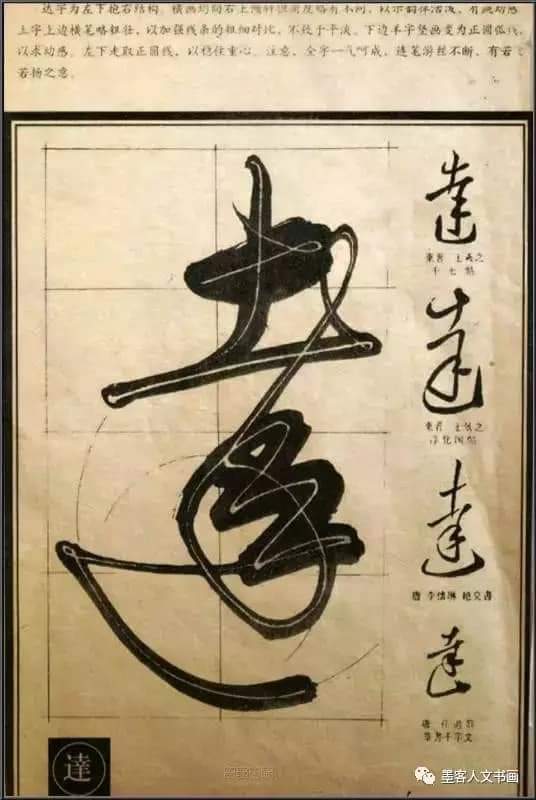 达字为左下抱右结构。横画均向右上倾斜但角度略有不同，以示韵律活泼、有跳动感
土字上边横笔略粗壮，以加强线条的粗细对比，不致于平淡。下边羊字竖画变为正圆弧线，
以求动感。左下走取正圆线，以稳住重心。注意，全字一气呵成，连笔游丝不断、有若
若扬之意。
達
達
東晋 王羲之
達
東晋 王羲之
淳化阁帖
達
唐 李懷琳 绝交書
達
唐
達
墨客人文书画